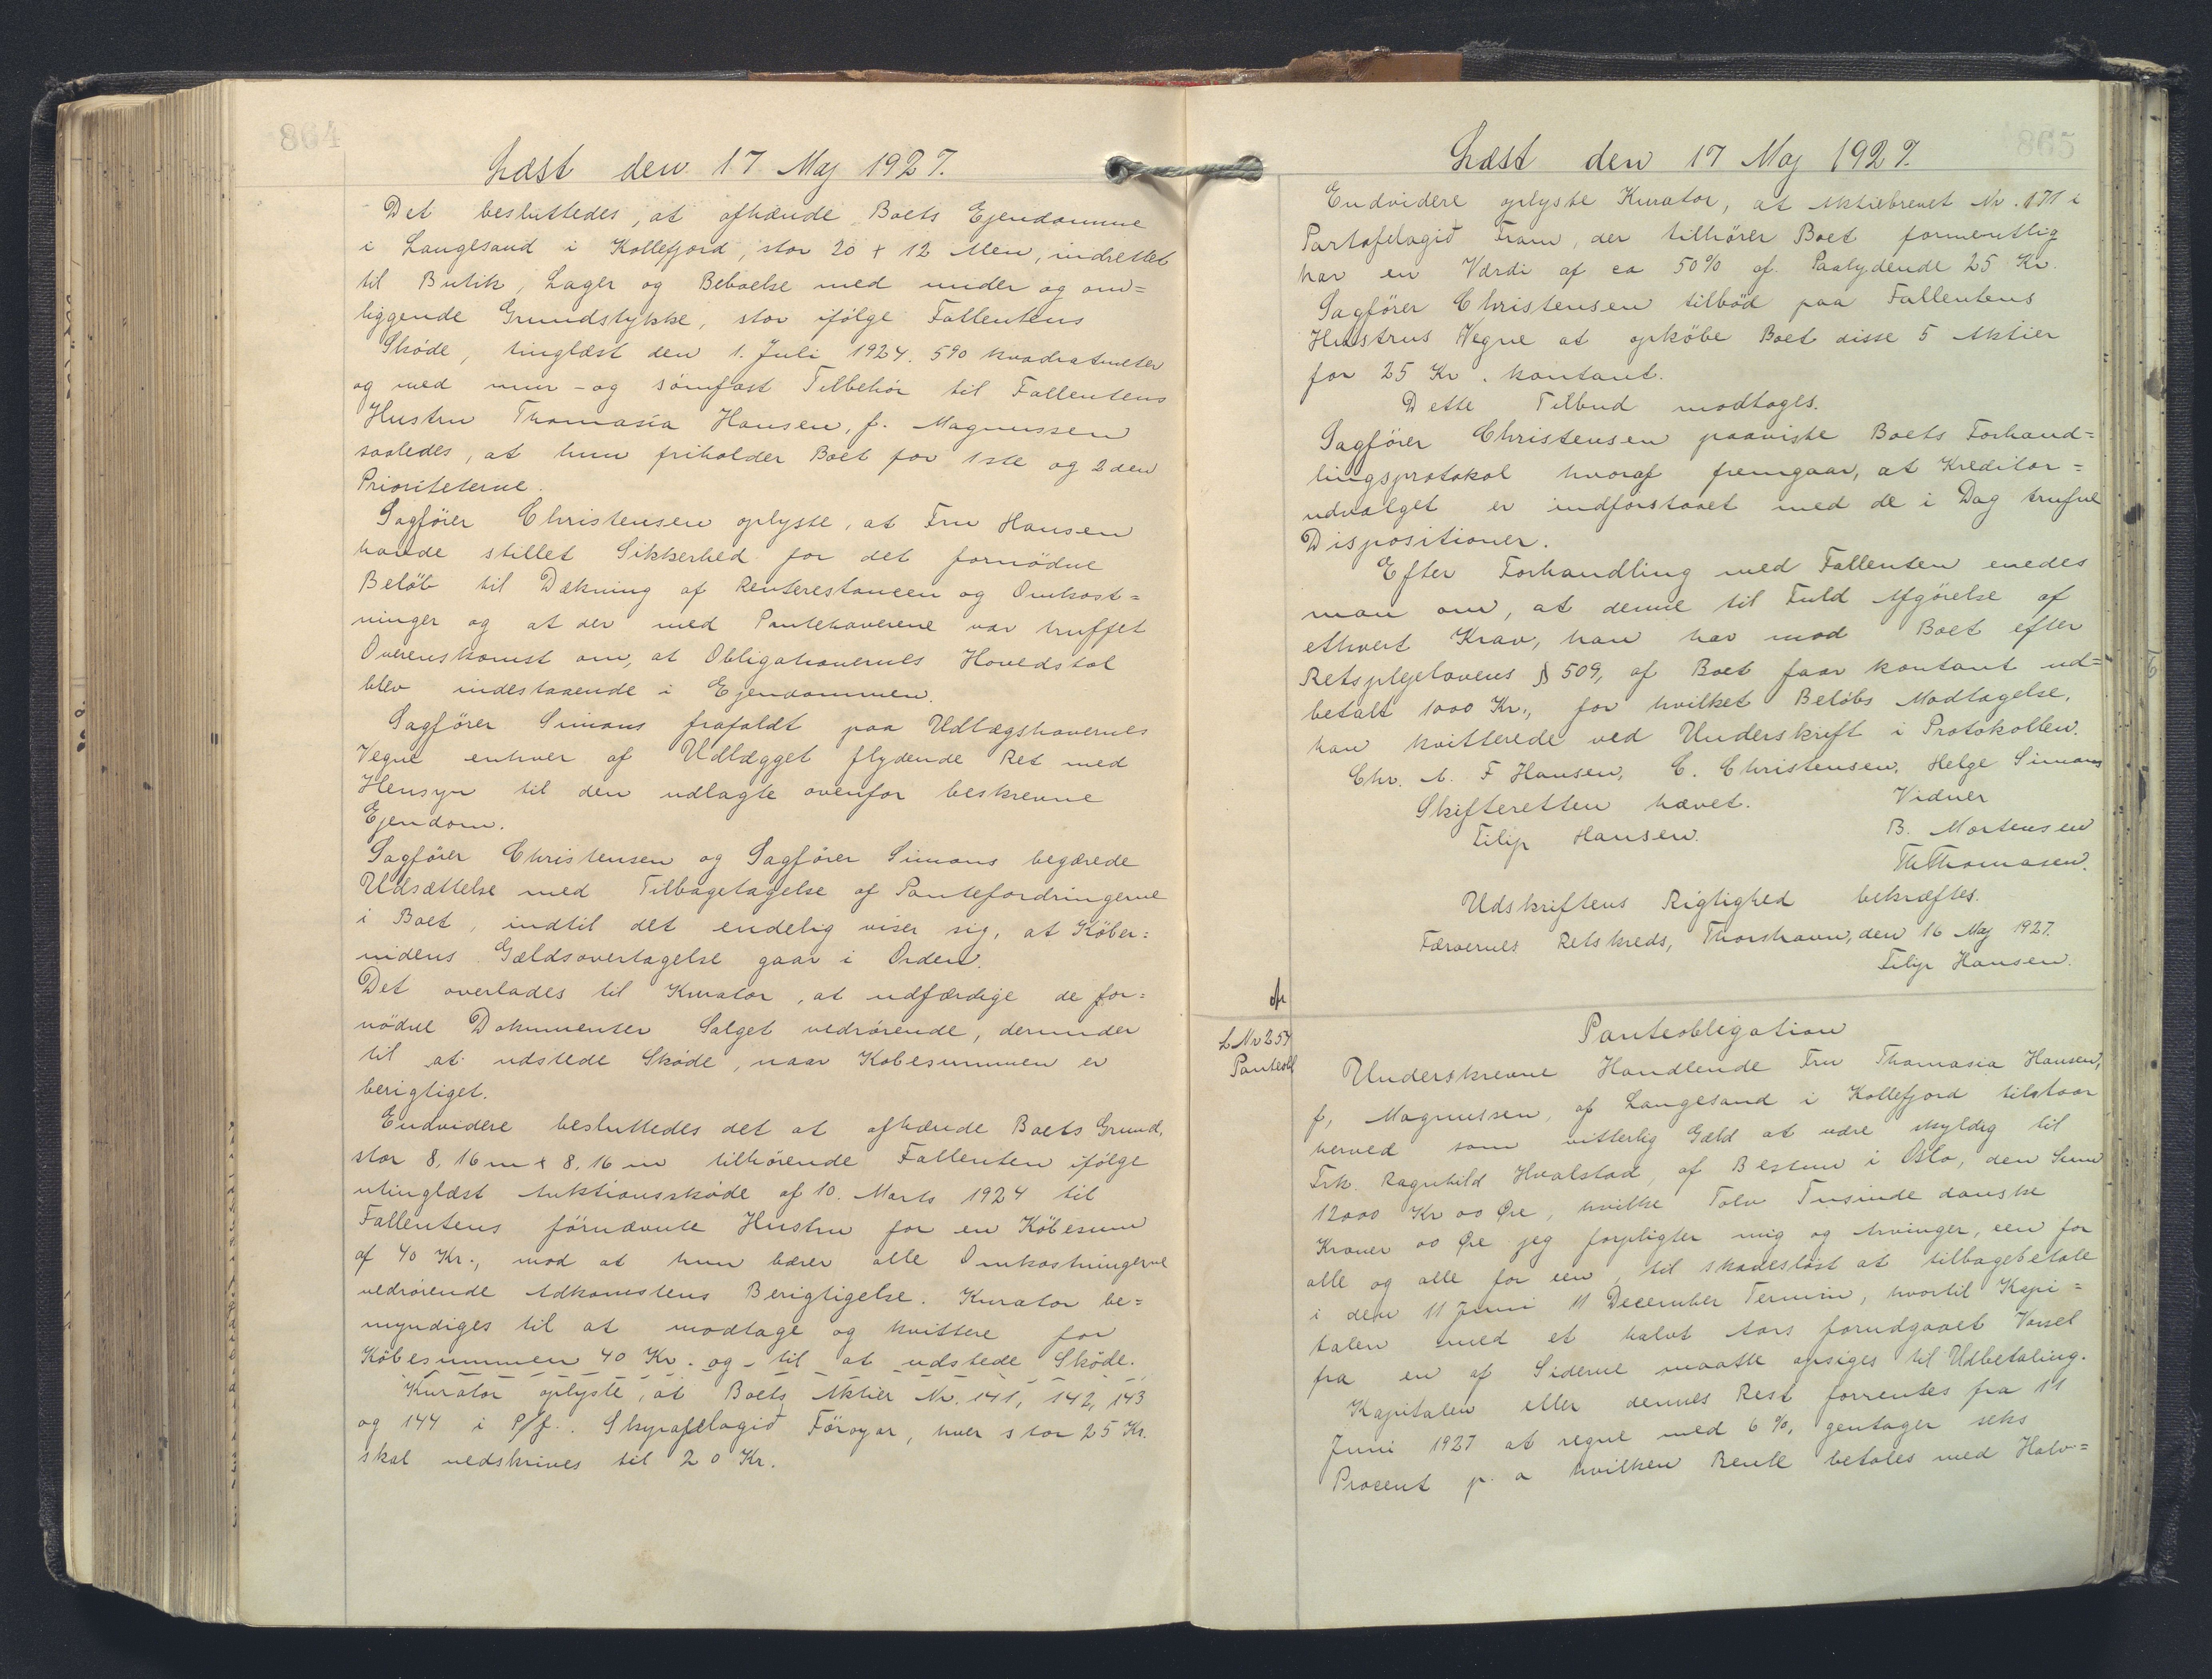 864
Læst den 17 Maj 1927.
Det besluttedes, at afhænde Boets Ejendomme
i Langesand i Kollefjord, stor 20 x 12 Alen, indrettet
til Butik, Lager og Beboelse med under og om=
liggende Grundstykke, stor ifølge Fallentens
Skøde, tinglæst den 1. Juli 1924. 590 kvadratmeter
og med mur- og sømfast Tilbehör til Fallentens
Hustru Thomasia Hansen, f. Magnussen
saaledes, at hun friholder Boet for 1ste og 2den
Prioriteterne.
Sagfører Christensen oplyste, at Fru Hansen
havde stillet Sikkerhed for det fornödne
Beløb til Dækning af Renterestancen og Omkost=
ninger og at der med Panthaverene var truffet
Overenskomst om, at Obligationernes Hovedstol
blev indestaaende i Ejendommen.
Sagfører Simons frafaldt paa Udlægshavernes
Vegne enhver af Udlægget flydende Ret med
Hensyn til den udlagte ovenfor beskrevne
Ejendom.
Sagfører Christensen og Sagfører Simons begærede
Udsættelse med Tilbagetagelse af Pantefordringerne
i Boet, indtil det endelig viser sig, at Køber=
indens Gældsovertagelse gaar i Orden.
Det overlades til Kurator, at udfærdige de for=
nödne Dokumenter Salget vedrørende, derunder
til at udstede Skøde, naar Købesummen er
berigtiget.
Endvidere besluttedes det at afhænde Boets Grund,
stor 8,16 m x 8,16 m tilhørende Fallenten ifölge
utinglæst Auktionsskøde af 10. Marts 1924 til
Fallentens förnævnte Hustru for en Købesum
af 40 Kr., mod at hun bærer alle Omkostningerne
vedrørende Adkomstens Berigtigelse. Kurator be=
myndiges til at modtage og kvittere for
Købesummen 40 Kr. og til at udstede Skøde.
Kurator oplyste, at Boets Aktier Nr. 141, 142, 143
og 144 i P/f. Skyrafelagið Föroyar, hver stor 25 Kr.
skal nedskrives til 20 Kr.
865
Læst den 17 Maj 1927.
Endvidere oplyste Kurator, at Aktiebrevet Nr. 171 i
Partafelagið Fram, der tilhører Boet formentlig
har en Værdi af ca 50% af Paalydende 25 Kr.
Sagfører Christensen tilbød paa Fallentens
Hustrus Vegne at opkøbe Boet disse 5 Aktier
for 25 Kr. kontant.
Dette Tilbud modtoges.
Sagfører Christensen paaviste Boets Forhand=
lingsprotokol hvoraf fremgaar, at Kreditor=
udvalget er indforstaaet med de i Dag trufne
Dispositioner.
Efter Forhandling med Fallenten enedes
man om, at denne til Fuld Afgørelse af
ethvert Krav, han har mod Boet efter
Retsplejelovens § 509, af Boet faar kontant ud=
betalt 1000 Kr., for hvilket Beløbs Modtagelse,
han kvitterede ved Underskrift i Protokollen.
Chr. A. F Hansen, C. Christensen, Helge Simons
Skifteretten hævet. Vidner
Filip Hansen. B. Mortensen
Th Thomasen.
Udskriftens Rigtighed bekræftes.
Færøernes Retskreds, Thorshavn, den 16 Maj 1927.
Filip Hansen.
L Nr 254
Panteobl
Panteobligation
Underskrevne Handlende Fru Thomasia Hansen,
f. Magnussen, af Langesand i Kollefjord tilstaar
herved som vitterlig Gæld at være skyldig til
Frk. Ragnhild Hvalstad, af Bestum i Oslo, den Sum
12000 Kr 00 Øre, hvilke Tolv Tusinde danske
Kroner 00 Øre jeg forpligter mig og Arvinger, een for
alle og alle for een, til skadesløst at tilbagebetale
i den 11 Juni 11 December Termin, hvortil Kapi=
talen med et halvt Aars forudgaaet Varsel
fra en af Siderne maatte opsiges til Udbetaling.
Kapitalen eller dennes Rest forrentes fra 11
Juni 1927 at regne med 6 %, gentager seks
Procent p. a hvilken Rente betales med Halv=